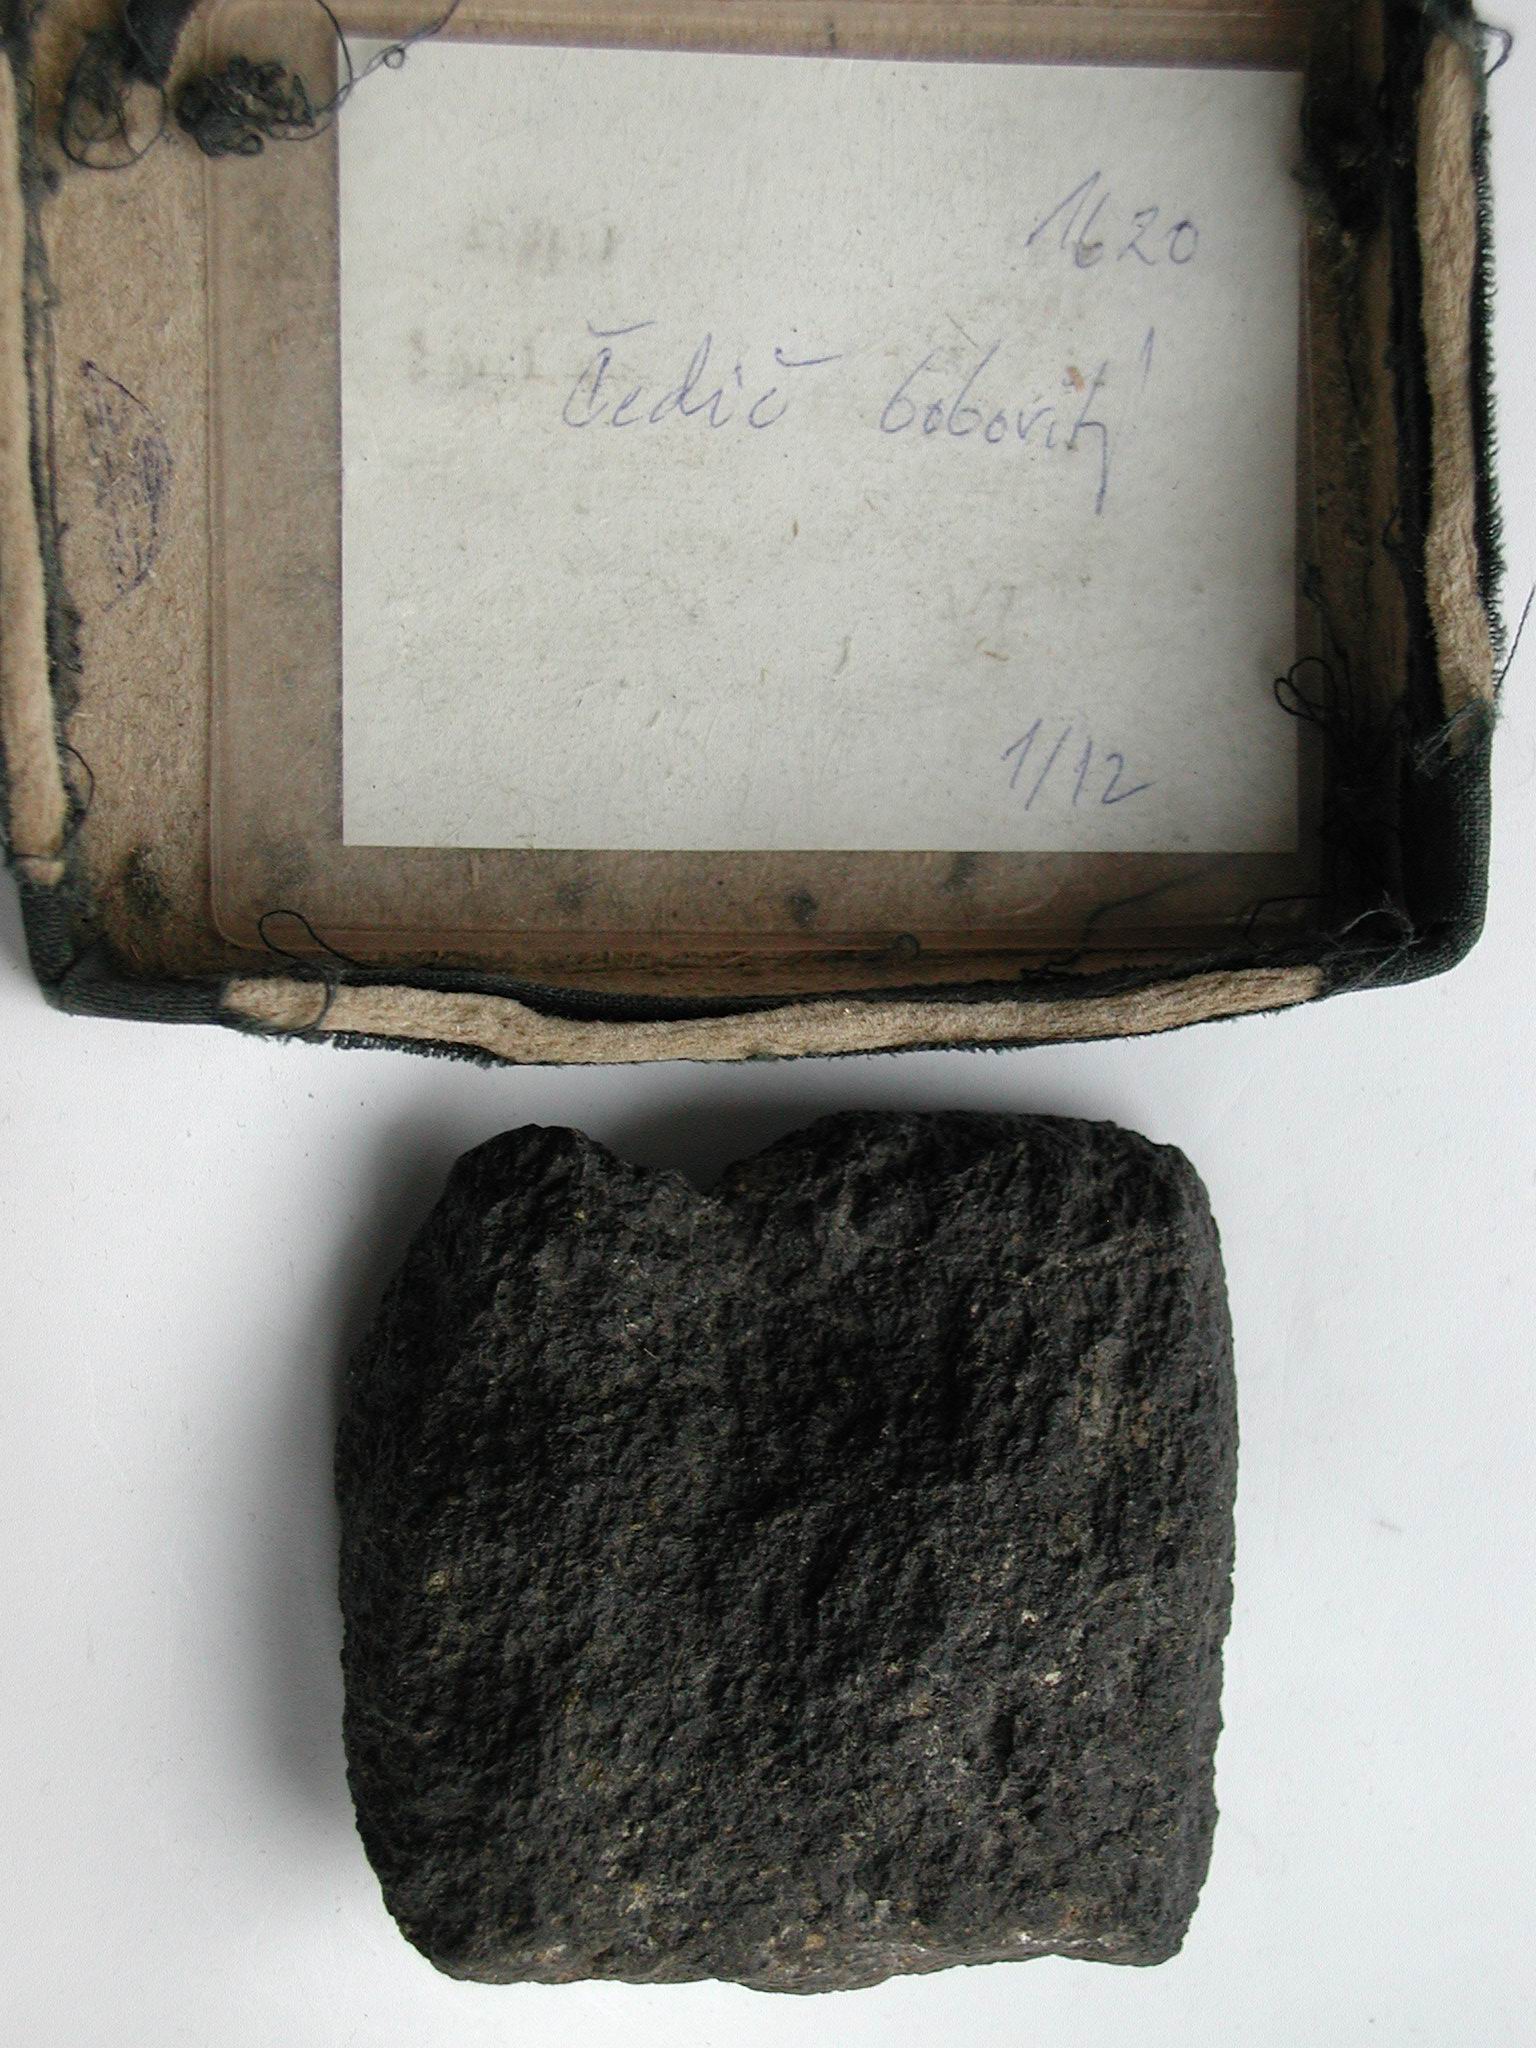 1620
Čedič bobovitý
1/12